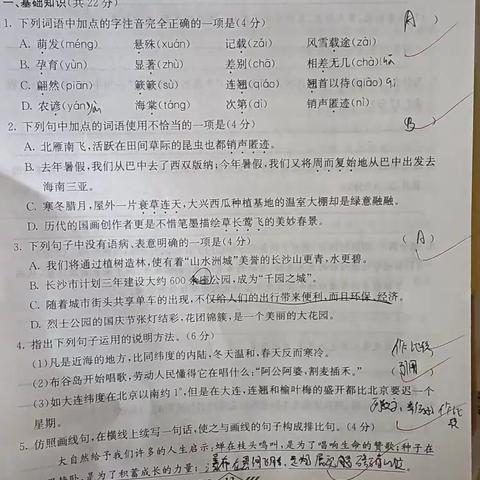 一、基础知识(共22分)
1. 下列词语中加点的字注音完全正确的一项是(4分) (A)
A. 萌发(méng) 悬殊(xuán) 记载(zǎi) 风雪载途(zài)
B. 孕育(yùn) 显著(zhù) 差别(chā) 相差无几(chà) chā
C. 翩然(piān) 簌簌(sù) 连翘(qiáo) 翘首以待(qiāo) qiáo
D. 农谚(yán) yàn 海棠(táng) 次第(dì) 销声匿迹(nì)
2. 下列句中加点的词语使用不恰当的一项是(4分) (B)
A. 北雁南飞,活跃在田间草际的昆虫也都销声匿迹。
B. 去年暑假,我们从巴中去了西双版纳;今年暑假,我们又将周而复始地从巴中出发去
海南三亚。
C. 寒冬腊月,屋外一片衰草连天,大兴西瓜种植基地的温室大棚却是绿意融融。
D. 历代的国画创作者更是不惜笔墨描绘草长莺飞的美妙春景。
3. 下列句子中没有语病、表意明确的一项是(4分) (A)
A. 我们将通过植树造林,使有着“山水洲城”美誉的长沙山更青,水更碧。
B. 长沙市计划三年建设大约600余座公园,成为“千园之城”。
C. 随着城市街头共享单车的出现,不仅给人们的出行带来便利,而且环保、经济。
D. 烈士公园的国庆节张灯结彩,花团锦簇,是一个美丽的大花园。
4. 指出下列句子运用的说明方法。(6分)
(1)凡是近海的地方,比同纬度的内陆,冬天温和,春天反而寒冷。 作比较
(2)布谷鸟开始唱歌,劳动人民懂得它在唱什么:“阿公阿婆,割麦插禾。” (引用)
(3)如大连纬度在北京以南约1°,但是在大连,连翘和榆叶梅的盛开都比北京要迟一个
星期。
5. 仿照画线句,在横线上续写一句话,使之与画线的句子构成排比句。(4分)
大自然给予我们许多的人生启示:蝉在枝头鸣叫,是为了唱响生命的赞歌;种子在